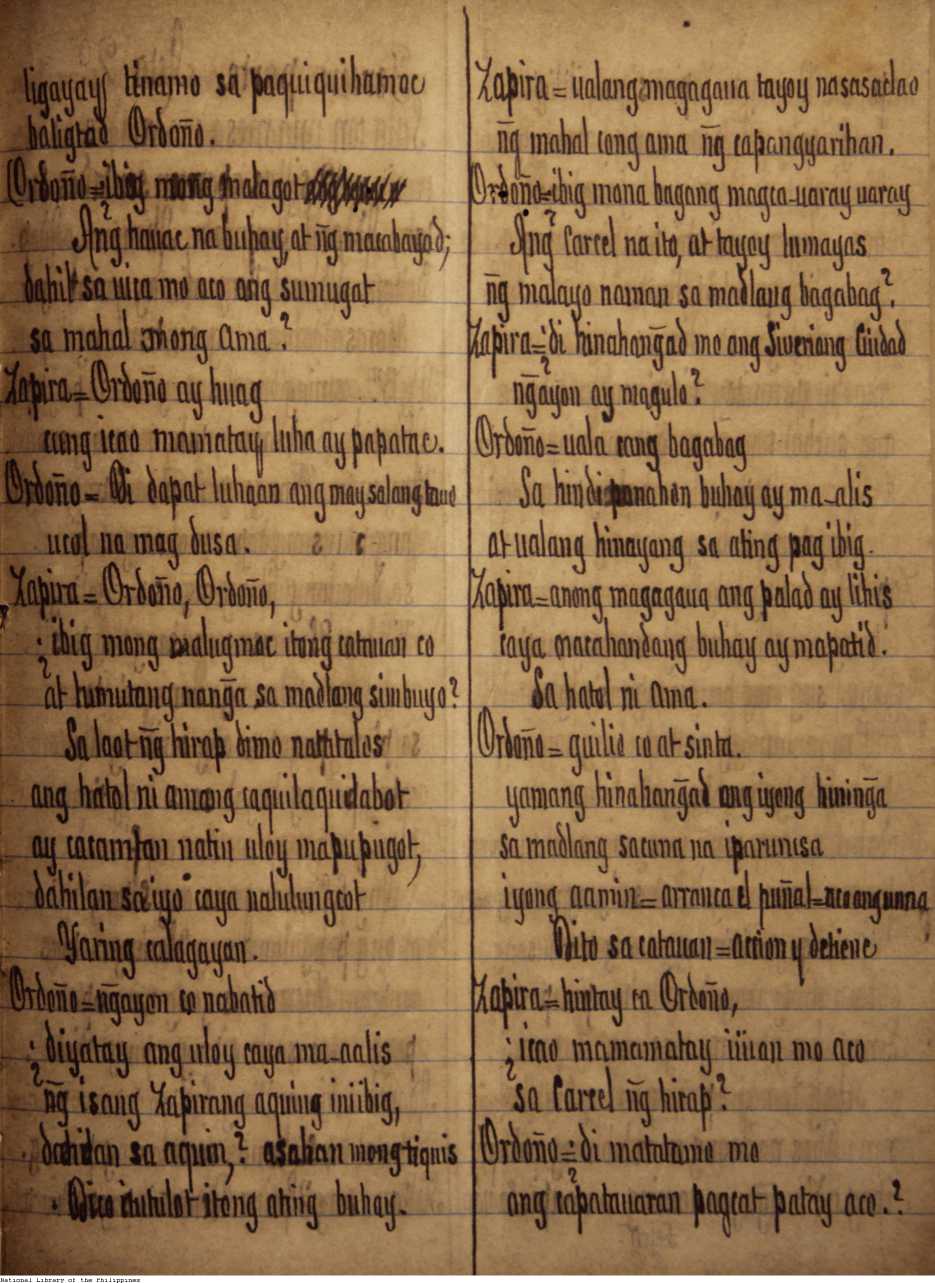 ligayay tinamo sa paquiquihamoc
baligtad Ordoño.
Ordoño=ibig mong malagot
Ang hauac na buhay, at ñg macabayad;
dahil sa uica mo aco ang sumugat
sa mahal mong Ama?
Zapira=Ordoño ay huag
cung icao mamatay luha ay papatac.
Ordoño= Di dapat luhaan ang may salang
ucol na mag dusa.
Zapira=Ordoño, Ordoño,
¿ibig mong malugmoc itong catauan co
at tumutang nanga sa madlang simbuyo?
Sa laot ñg hirap dimo natitalos
ang hatol ni amang caquilaquidabot
ay catampan natin uloy mapupugot,
dahilan sa iyo caya nalulungcot
Yaring calagayan.
Ordoño=ñgayon co nabatid
¿diyatay ang uloy caya ma-aalis
ñg isang Zapirang aquing iniibig,
dahilan sa aquin,? asahan mong tiquis
itutulot itong ating buhay.
Zapira=ualang magagaua tayoy nasasaclao
ñg mahal cong ama ñg capangyarihan.
Ordoño=ibig mona bagang magca-uaray uaray
Ang Carcel na ito, at tayoy lumayas
ñg malayo naman sa madlang bagabag?.
Zapira=¿di hinahangad mo ang Siveriang Ciudad
ñgayon ay magulo?
Ordoño=uala cang bagabag
Sa hindi panahon buhay ay ma-alis
at ualang hinayang sa ating pag ibig.
Zapira=anong magagaua ang palad ay lihis
caya macahandang buhay ay mapatid.
Sa hatol ni ama.
Ordoño=guilio co at sinta.
yamang hinahangad ang iyong hininga
sa madlang sacuna na iparurusa
iyong aamin=arranca el puñal=aco ang umuna
Dito sa catauan=accion y detiene
Zapira=hintay ca Ordoño,
¿icao mamamatay iiuan mo aco
sa Carcel ñg hirap?
Ordoño=¿di matatamo mo
ang capatauaran pagcat patay aco.?
National Library of the Philippines